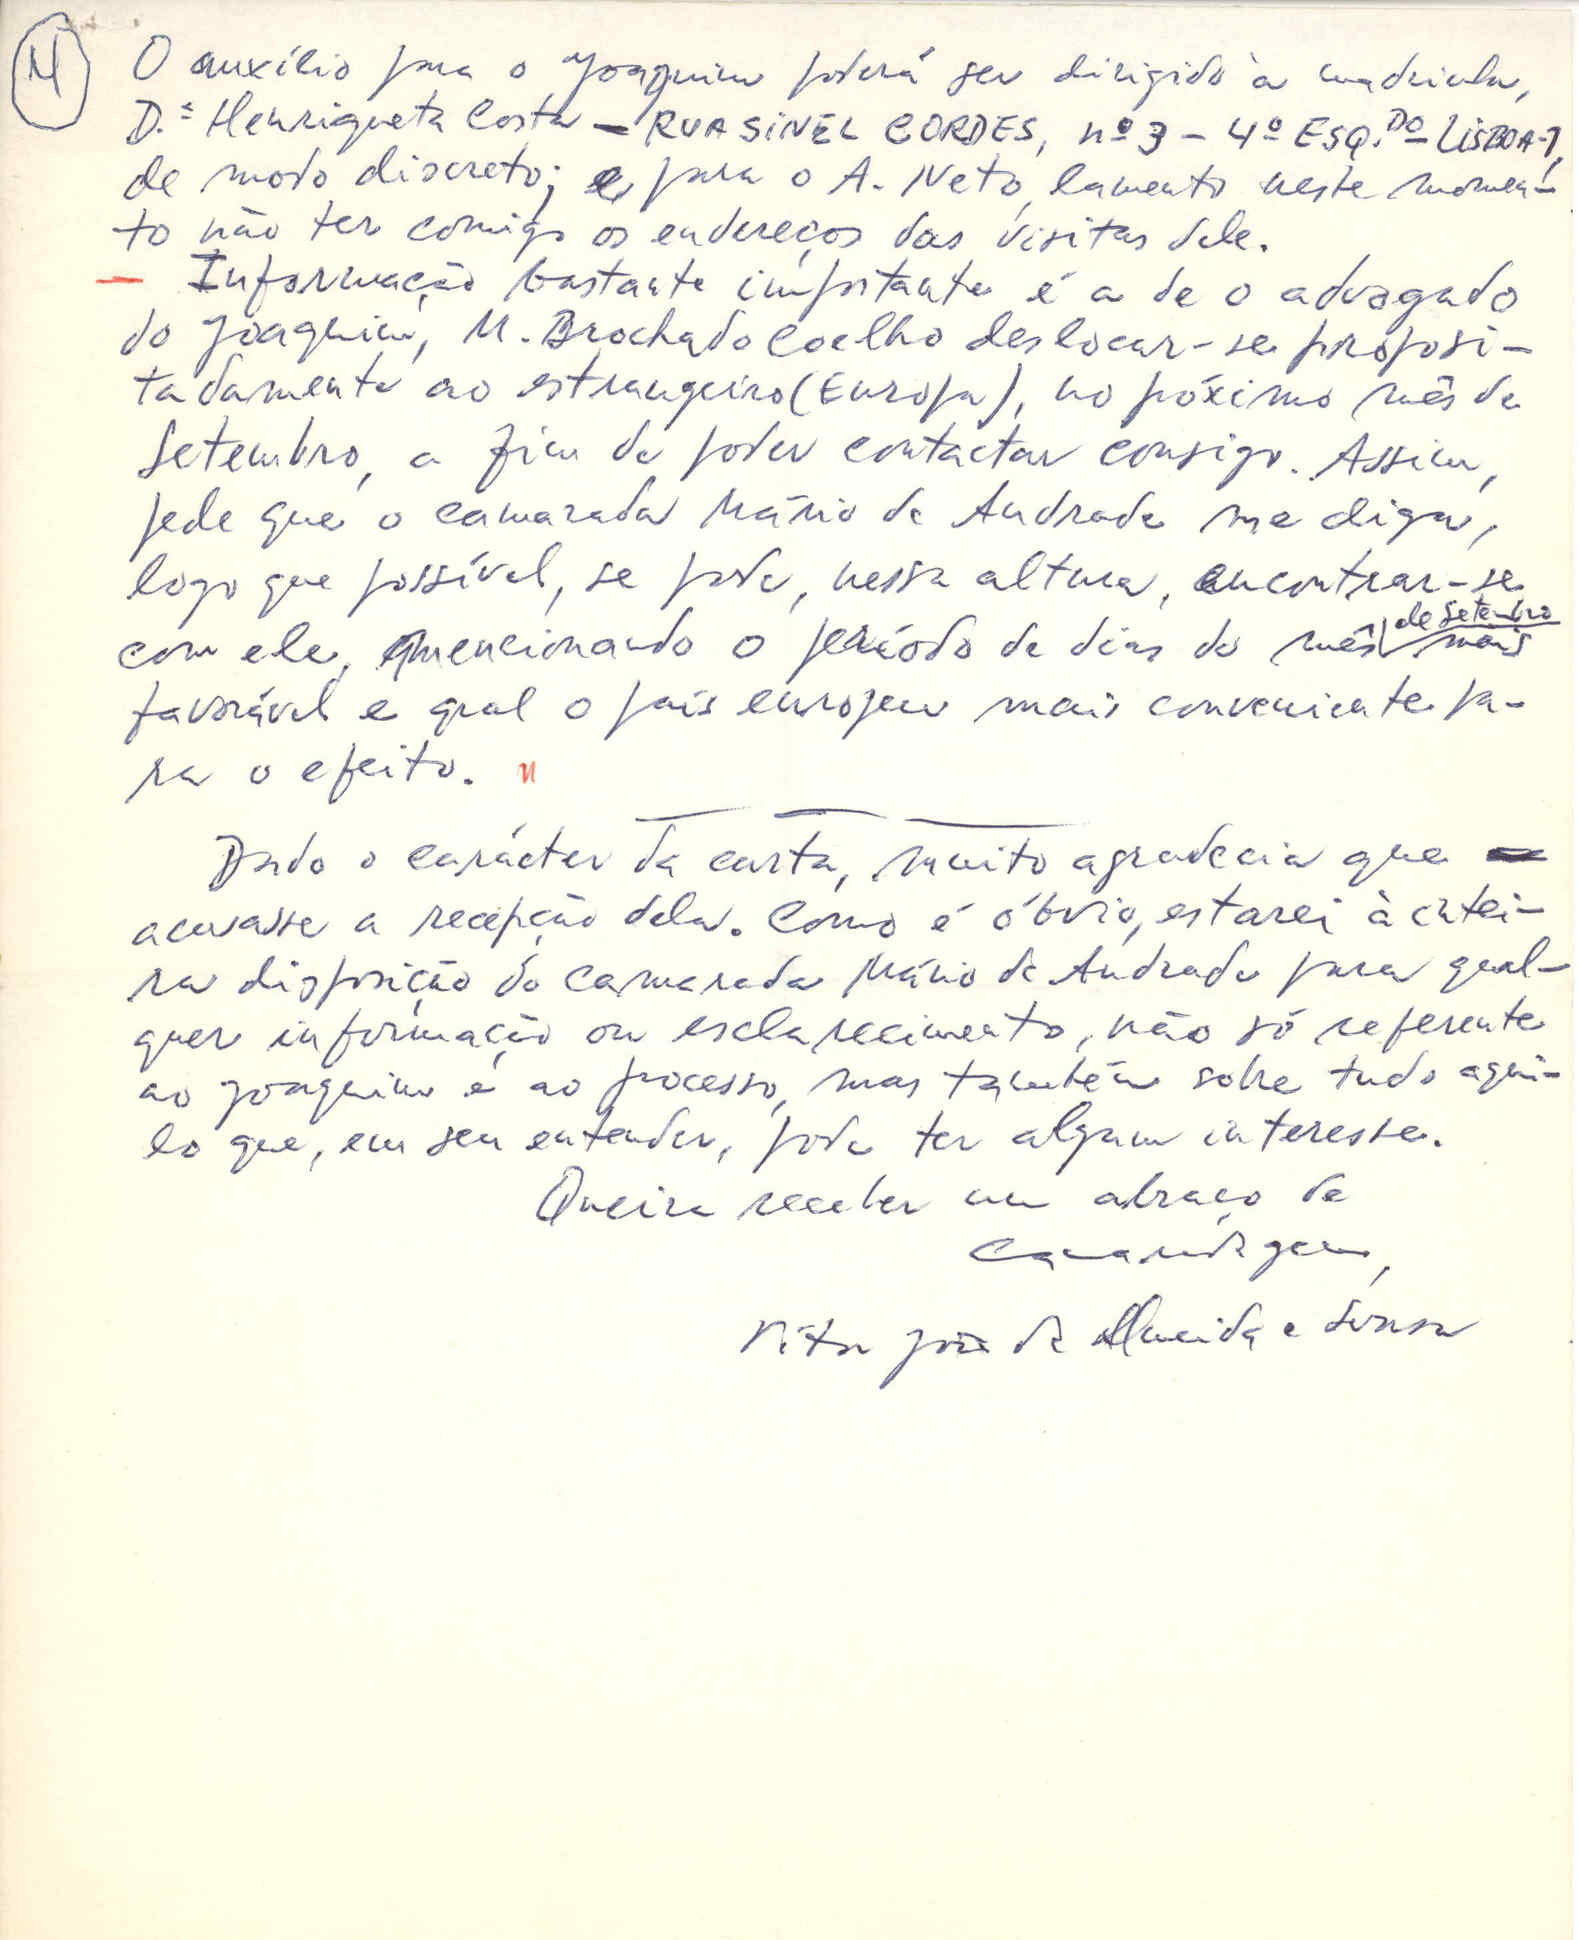 4
O auxílio para o Joaquim poderá ser dirigido à madrinha,
D.ª Henriqueta Costa – RUA SINEL CORDES, nº 3 – 4º ESQ.DO – LISBOA-1,
de modo discreto; e para o A. Neto, lamento neste momen-
to não ter comigo os endereços das visitas dele.
– Informação bastante importante é a de o advogado
do Joaquim, M. Brochado Coelho deslocar-se proposi-
tadamente ao estrangeiro (Europa), no póximo mês de
Setembro, a fim de poder contactar consigo. Assim,
pede que o camarada Mário de Andrade me diga,
logo que possível, se pode, nessa altura, encontrar-se
com ele, mencionando o período de dias do mês de Setembro mais
favorável e qual o país europeu mais conveniente pa-
ra o efeito. "
Dado o carácter da carta, muito agradecia que
acusasse a recepção dela. Como é óbvio, estarei à intei-
ra disposição do camarada Mário de Andrade para qual-
quer informação ou esclarecimento, não só referente
ao Joaquim e ao processo, mas também sobre tudo aqui-
lo que, em seu entender, pode ter algum interesse.
Queira receber um abraço de
camaradagem,
Vítor José de Almeida e Sousa